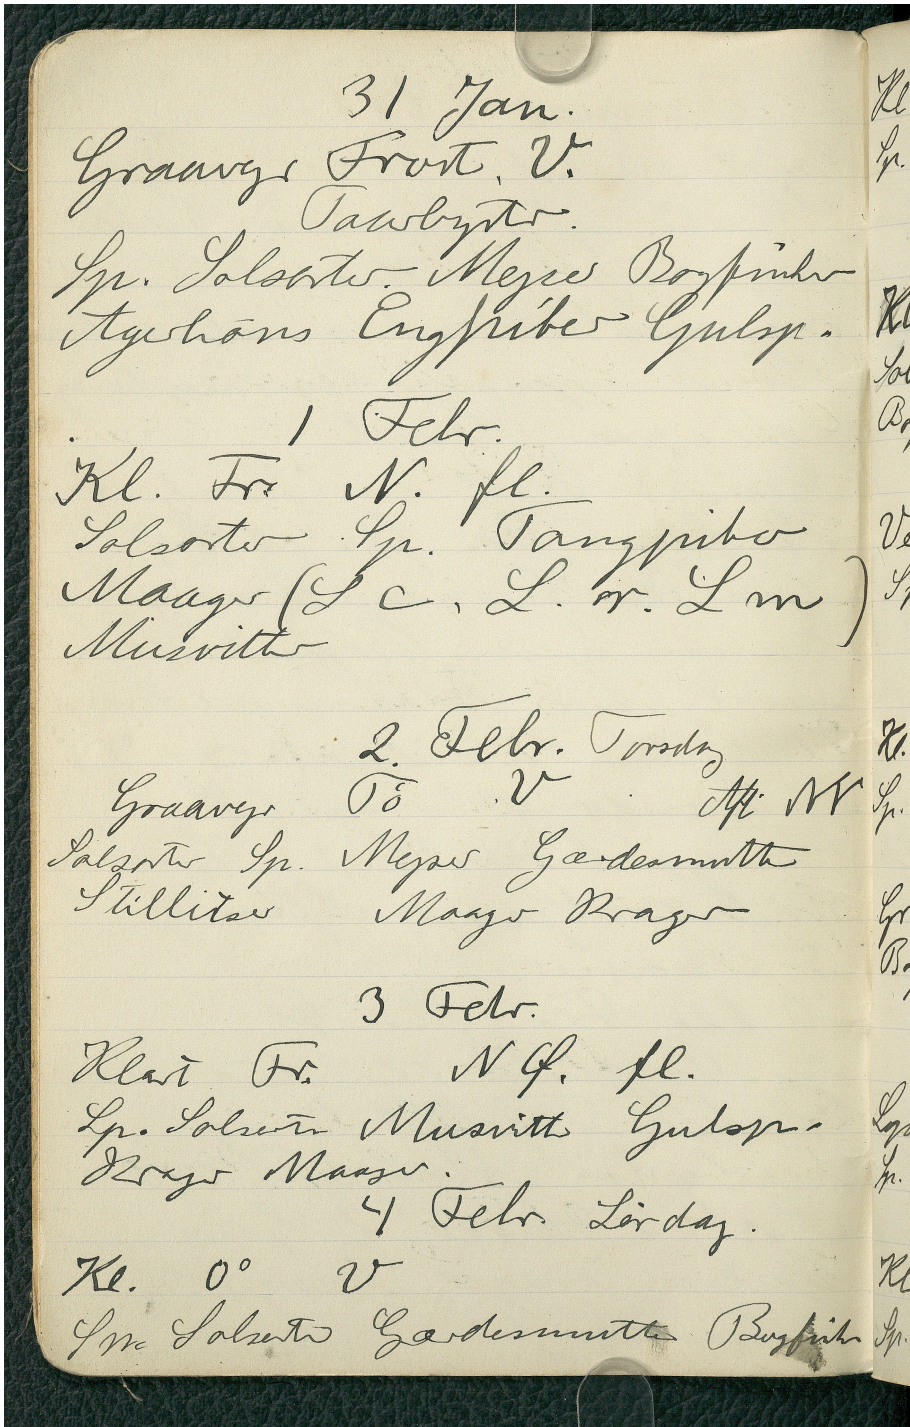 31 Jan.
Graavejr Frost. V.
Taarbystr.
Sp. Solsorter. Mejser Bogfinker
Agerhöns Engpiber Gulsp.
1 Febr.
Kl. Fr. N. fl.
Solsorter Sp. Tangpiber
Maager (L c. L. r. L m)
Musvitter
2. Febr. Torsdag
Graavejr Tö V Aft. NV
Solsorter Sp. Mejser Gærdesmutte
Stillitser Maager Krager
3 Febr.
Klart Fr. N Ø. fl.
Sp. Solsorte Musvitte Gulsp.
Krager Maager.
4 Febr. Lørdag.
Kl. 0° V
Sp. Solsorte Gærdesmutte Bogfink